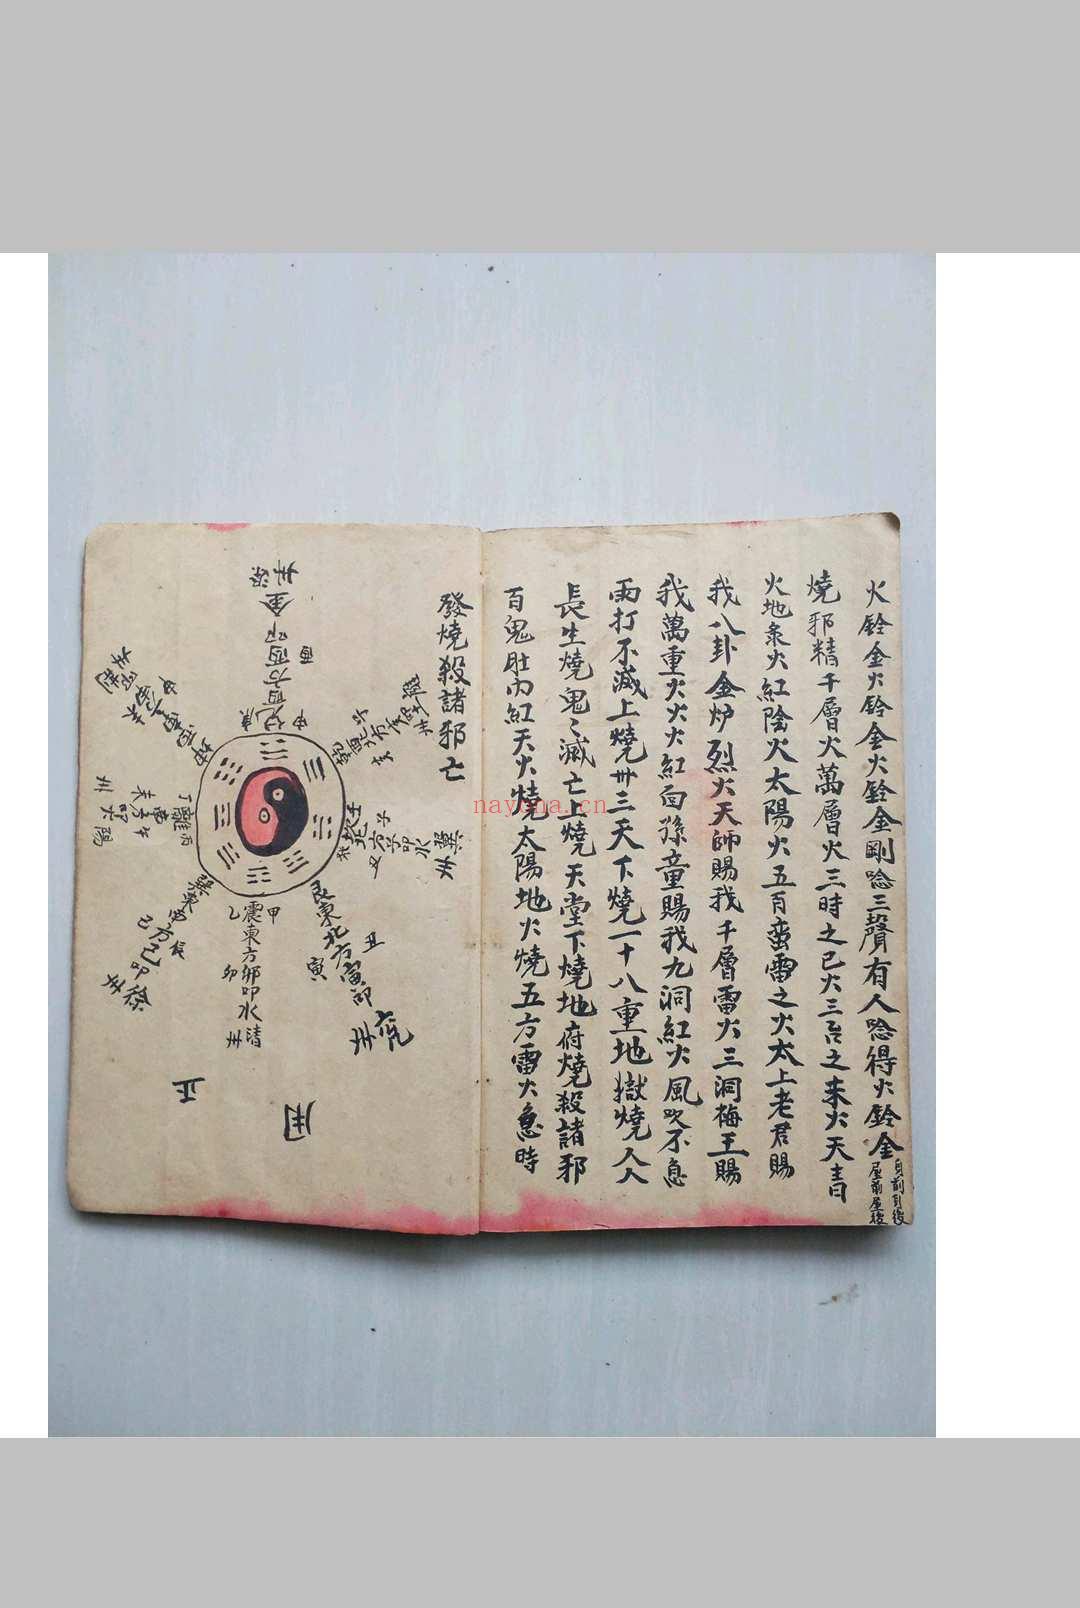 火鈴金火鈴金火鈴金剛唸三聲有人唸得火鈴金
身前身後
屋前屋後
燒邪精千層火萬層火三時之已火三台之未火天青
火地炁火紅陰火太陽火五百蛮雷之火太上老君賜
我八卦金炉烈火天師賜我千層雷火三洞梅王賜
我萬重火火火紅面孫童賜我九洞紅火風吹不息
雨打不滅上燒卅三天下燒一十八重地獄燒人人
長生燒鬼鬼滅亡上燒天堂下燒地府燒殺諸邪
百鬼肚內紅天火燒太陽地火燒五方雷火急時
發燒殺諸邪亡
兌西方酉印金梁州
庚
申
酉
坎北方子印水冀州
壬
癸
艮東北方寅印兗州
丑
寅
震東方卯印水清州
甲
乙
卯
丁離丙
巳
正
用
nayona.cn